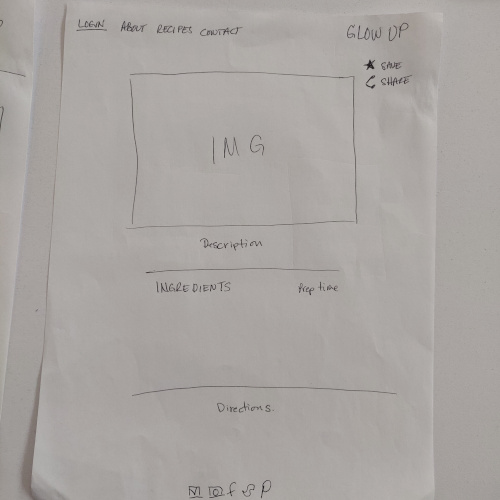 LOGIN ABOUT RECIPES CONTACT
GLOW UP
SAVE
SHARE
IMG
Description
INGREDIENTS Prep time
Directions.